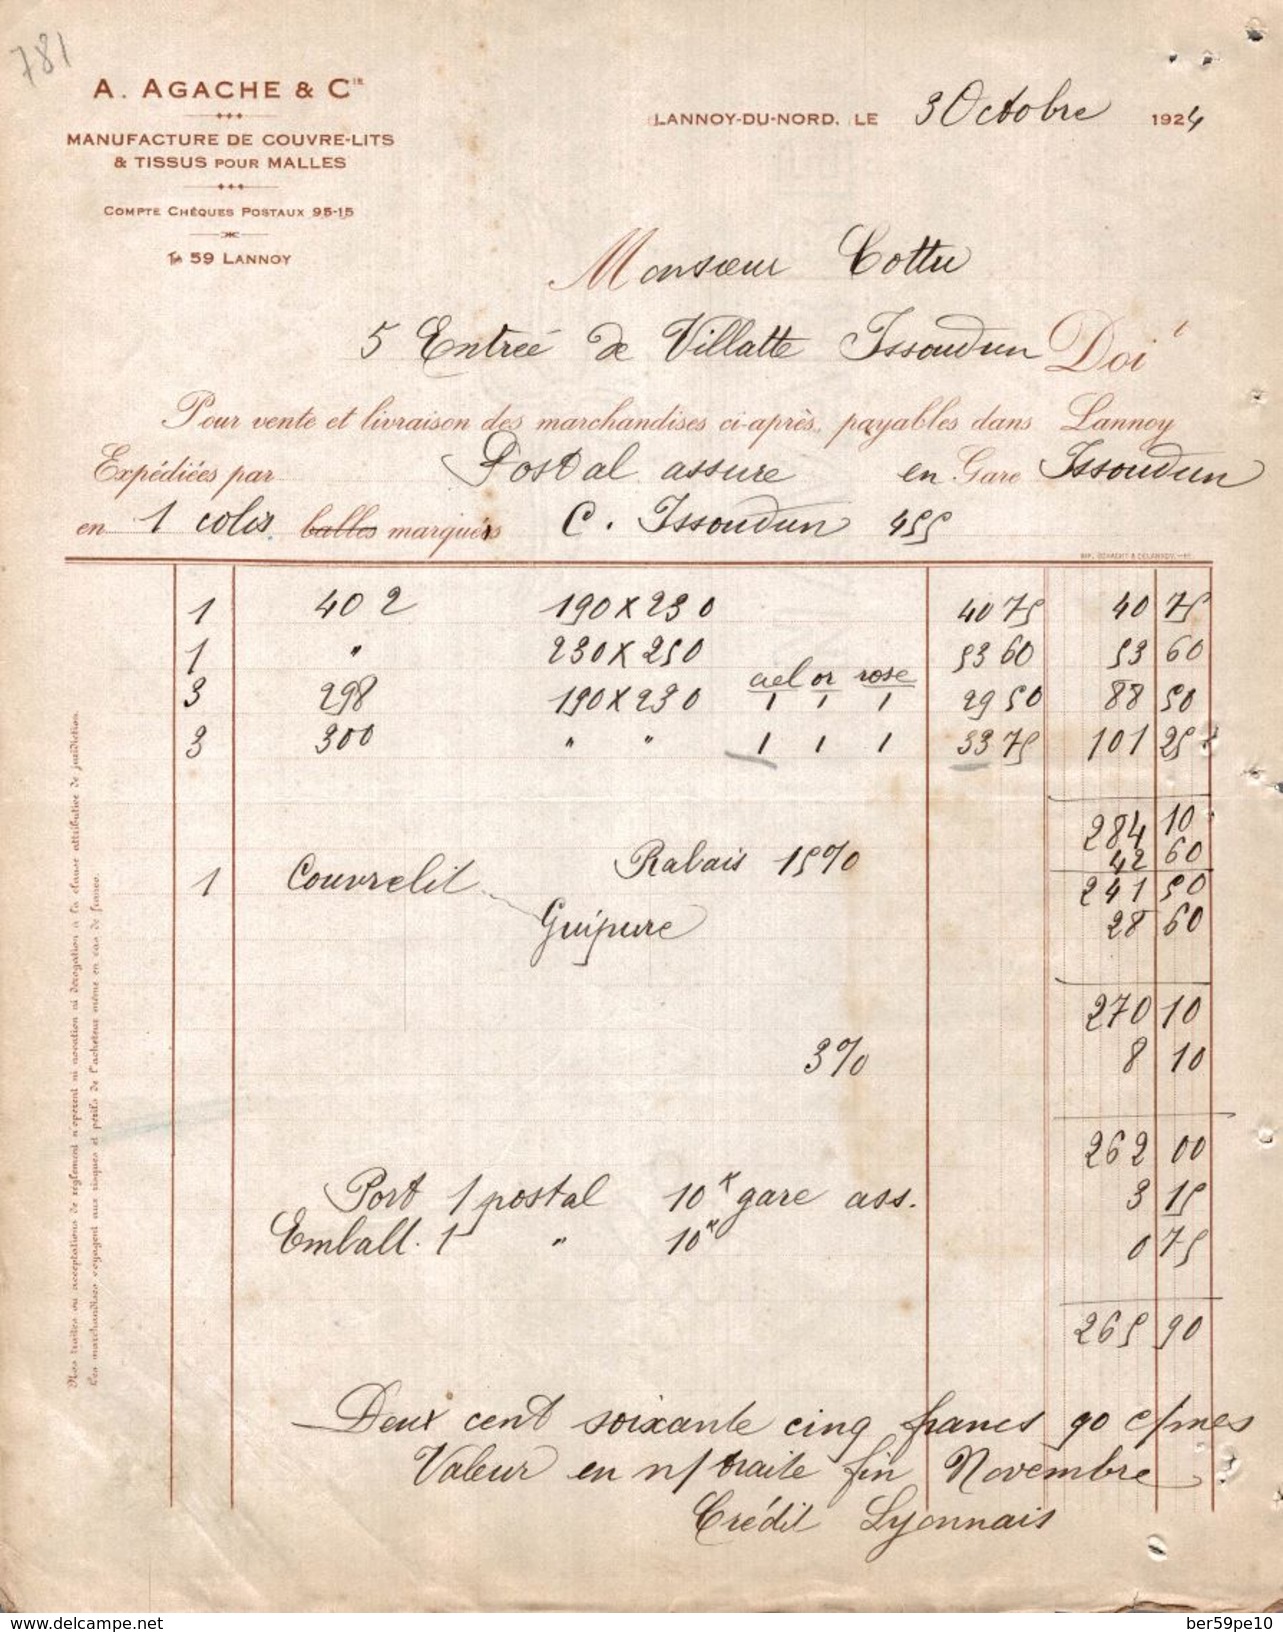 781
A. AGACHE & Cie
MANUFACTURE DE COUVRE-LITS
& TISSUS POUR MALLES
COMPTE CHÉQUES POSTAUX 95-15
Tél 59 LANNOY
LANNOY-DU-NORD, LE 3 Octobre 1924
Monsieur Cottu
5 Entrée de Villatte Issoudun Doit
Pour vente et livraison des marchandises ci-après, payables dans Lannoy
Expédiées par Postal assure en Gare Issoudun
en 1 colis balles marqués C. Issoudun 455
1 402 190 X 230 40 75 40 75
1 " 230 X 250 53 60 53 60
ciel or rose
3 298 190 X 230 1 1 1 29 50 88 50
3 300 " " 1 1 1 33 75 101 25
284 10
Rabais 15% 42 60
1 Couvrelit 241 50
Guipure 28 60
270 10
3% 8 10
262 00
Port 1 postal 10k gare ass. 3 15
Emball. 1 " 10k 0 75
265 90
Deux cent soixante cinq francs 90 c/mes
Valeur en n/ traite fin Novembre
Crédit Lyonnais
Nos traites ou acceptations de règlement n'opèrent ni novation ni dérogation à la clause attributive de juridiction.
Les marchandises voyagent aux risques et périls de l'acheteur même en cas de franco.
www.delcampe.net
ber59pe10